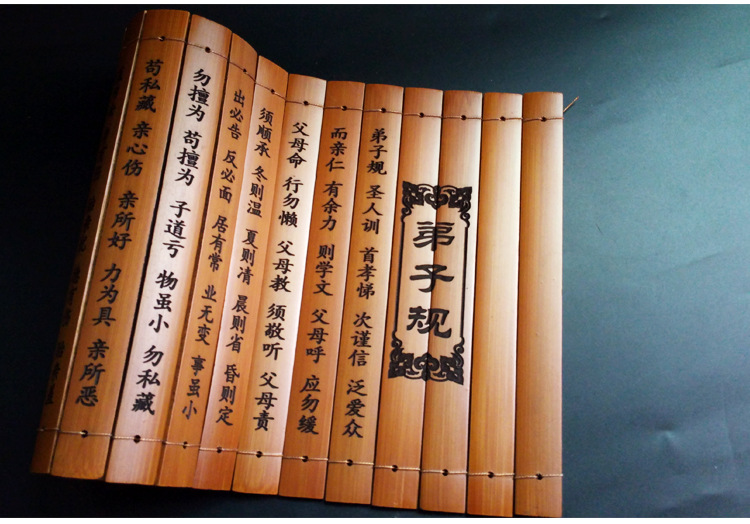 弟子规
弟子规 圣人训 首孝悌 次谨信 泛爱众
而亲仁 有余力 则学文 父母呼 应勿缓
父母命 行勿懒 父母教 须敬听 父母责
须顺承 冬则温 夏则凊 晨则省 昏则定
出必告 反必面 居有常 业无变 事虽小
勿擅为 苟擅为 子道亏 物虽小 勿私藏
苟私藏 亲心伤 亲所好 力为具 亲所恶